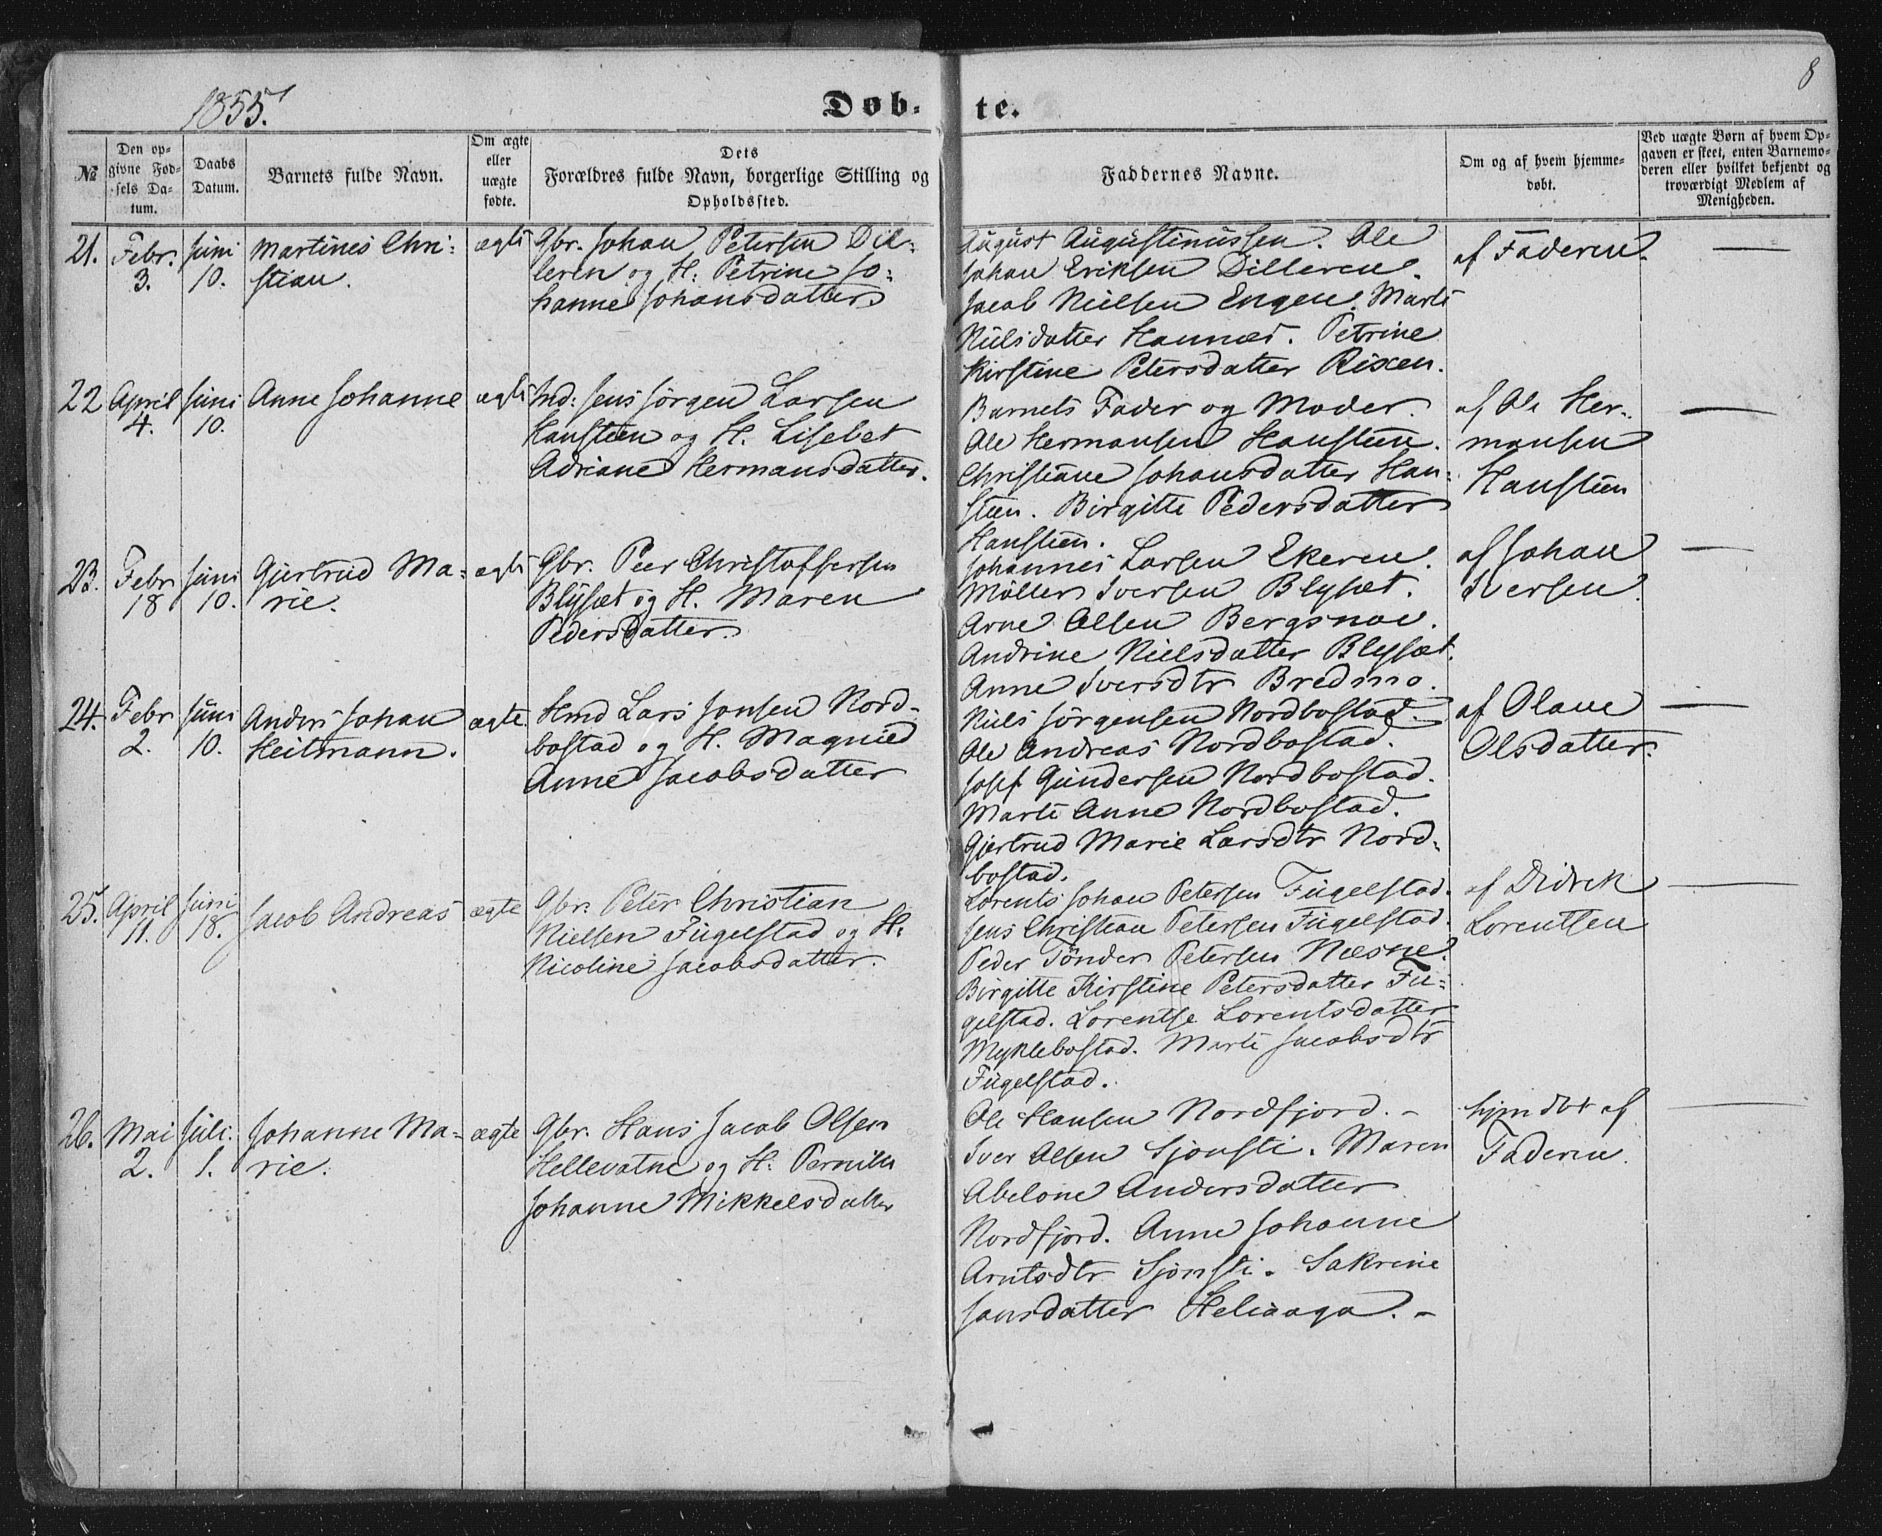 1855.
Døb-
te.
8
№
Den opgivne Fødsels Datum.
Daabs Datum.
Barnets fulde Navn.
Om ægte eller uægte fødte.
Dets
Forældres fulde Navn, borgerlige Stilling og
Opholdssted.
Faddernes Navne.
Om og af hvem hjemme-
døbt.
Ved uægte Børn af hvem Op-
gaven er skeet, enten Barnemo-
deren eller hvilket bekjendt og
troværdigt Medlem af
Menigheden.
21. Febr. 3. Juni 10.
Martines Chri-
stian.
ægte
Gbr. Johan Petersen Dil-
leren og H: Petrine Jo-
hanne Johansdatter
August Augustinussen. Ole
Johan Eriksen Dilleren.
Jacob Nielsen Engen. Marte
Nielsdatter Hannæs. Petrine
Kirstine Petersdatter Rixen.
af Faderen.
22 April 4. Juni 10.
Anne Johanne
ægte
Ind: Jens Jørgen Larsen
Hansteen og H. Lisebet
Adriane Hermansdatter.
Barnets Fader og Moder.
Ole Hermansen Hansteen.
Christiane Johansdatter Han-
steen. Birgitte Pedersdatter
Hansteen.
af Ole Her-
mansen
Hansteen
23. Febr 18 Juni 10.
Gjertrud Ma-
rie.
ægte
Gbr. Peer Christoffersen
Blysæt og H. Maren
Pedersdatter.
Johannes Larsen Ekeren.
Møller Iversen Blysæt.
Arne Olsen Bergsnov.
Andrine Nielsdatter Blysæt.
Anne Iversdtr Bredmo.
af Johan
Iversen.
24. Febr 2. Juni 10.
Anders Johan
Heitmann.
ægte
Hmd Lars Jonsen Nord-
bostad og H. Magnild
Anne Jacobsdatter
Niels Jørgensen Nordbostad.
Ole Andreas Nordbostad.
Josef Gundersen Nordbostad.
Marte Anne Nordbostad.
Gjertrud Marie Larsdtr Nord-
bostad.
af Olave
Olsdatter.
25. April 11. Juni 18.
Jacob Andreas
ægte
Gbr. Peter Christian
Nielsen Fugelstad og H.
Nicoline Jacobsdatter.
Lorents Johan Petersen Fugelstad.
Jens Christian Petersen Fugelstad.
Peder Tønder Petersen Næsne.
Birgitte Kirstine Petersdatter Fu-
gelstad. Lorentse Lorentsdatter
Myklebostad. Merte Jacobsdtr
Fugelstad.
af Didrik
Lorentsen
26. Mai 2. Juli 1.
Johanne Ma-
rie.
ægte
Gbr. Hans Jacob Olsen
Hellevatne og H. Pernille
Johanne Mikkelsdatter
Ole Hansen Nordfjord. -
Iver Olsen Sjonsti. Maren
Abelone Andersdatter
Nordfjord. Anne Johanne
Arntsdtr Sjonsti. Sakrine
Jansdatter Heliaaga. -
hjmdbt af
Faderen.